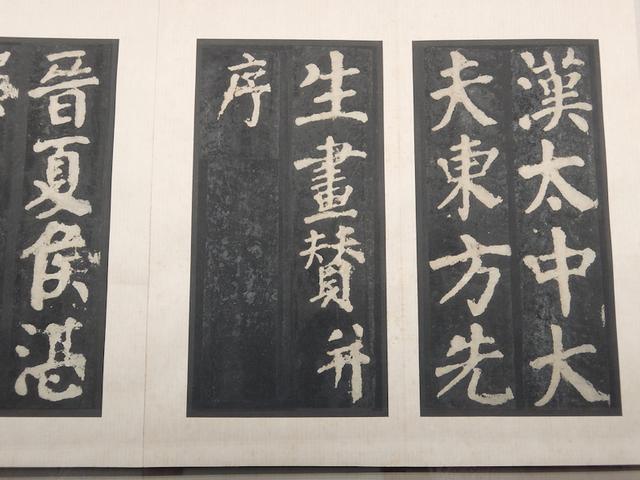 漢太中大
夫東方先
生畫賛并
序
晉夏侯湛